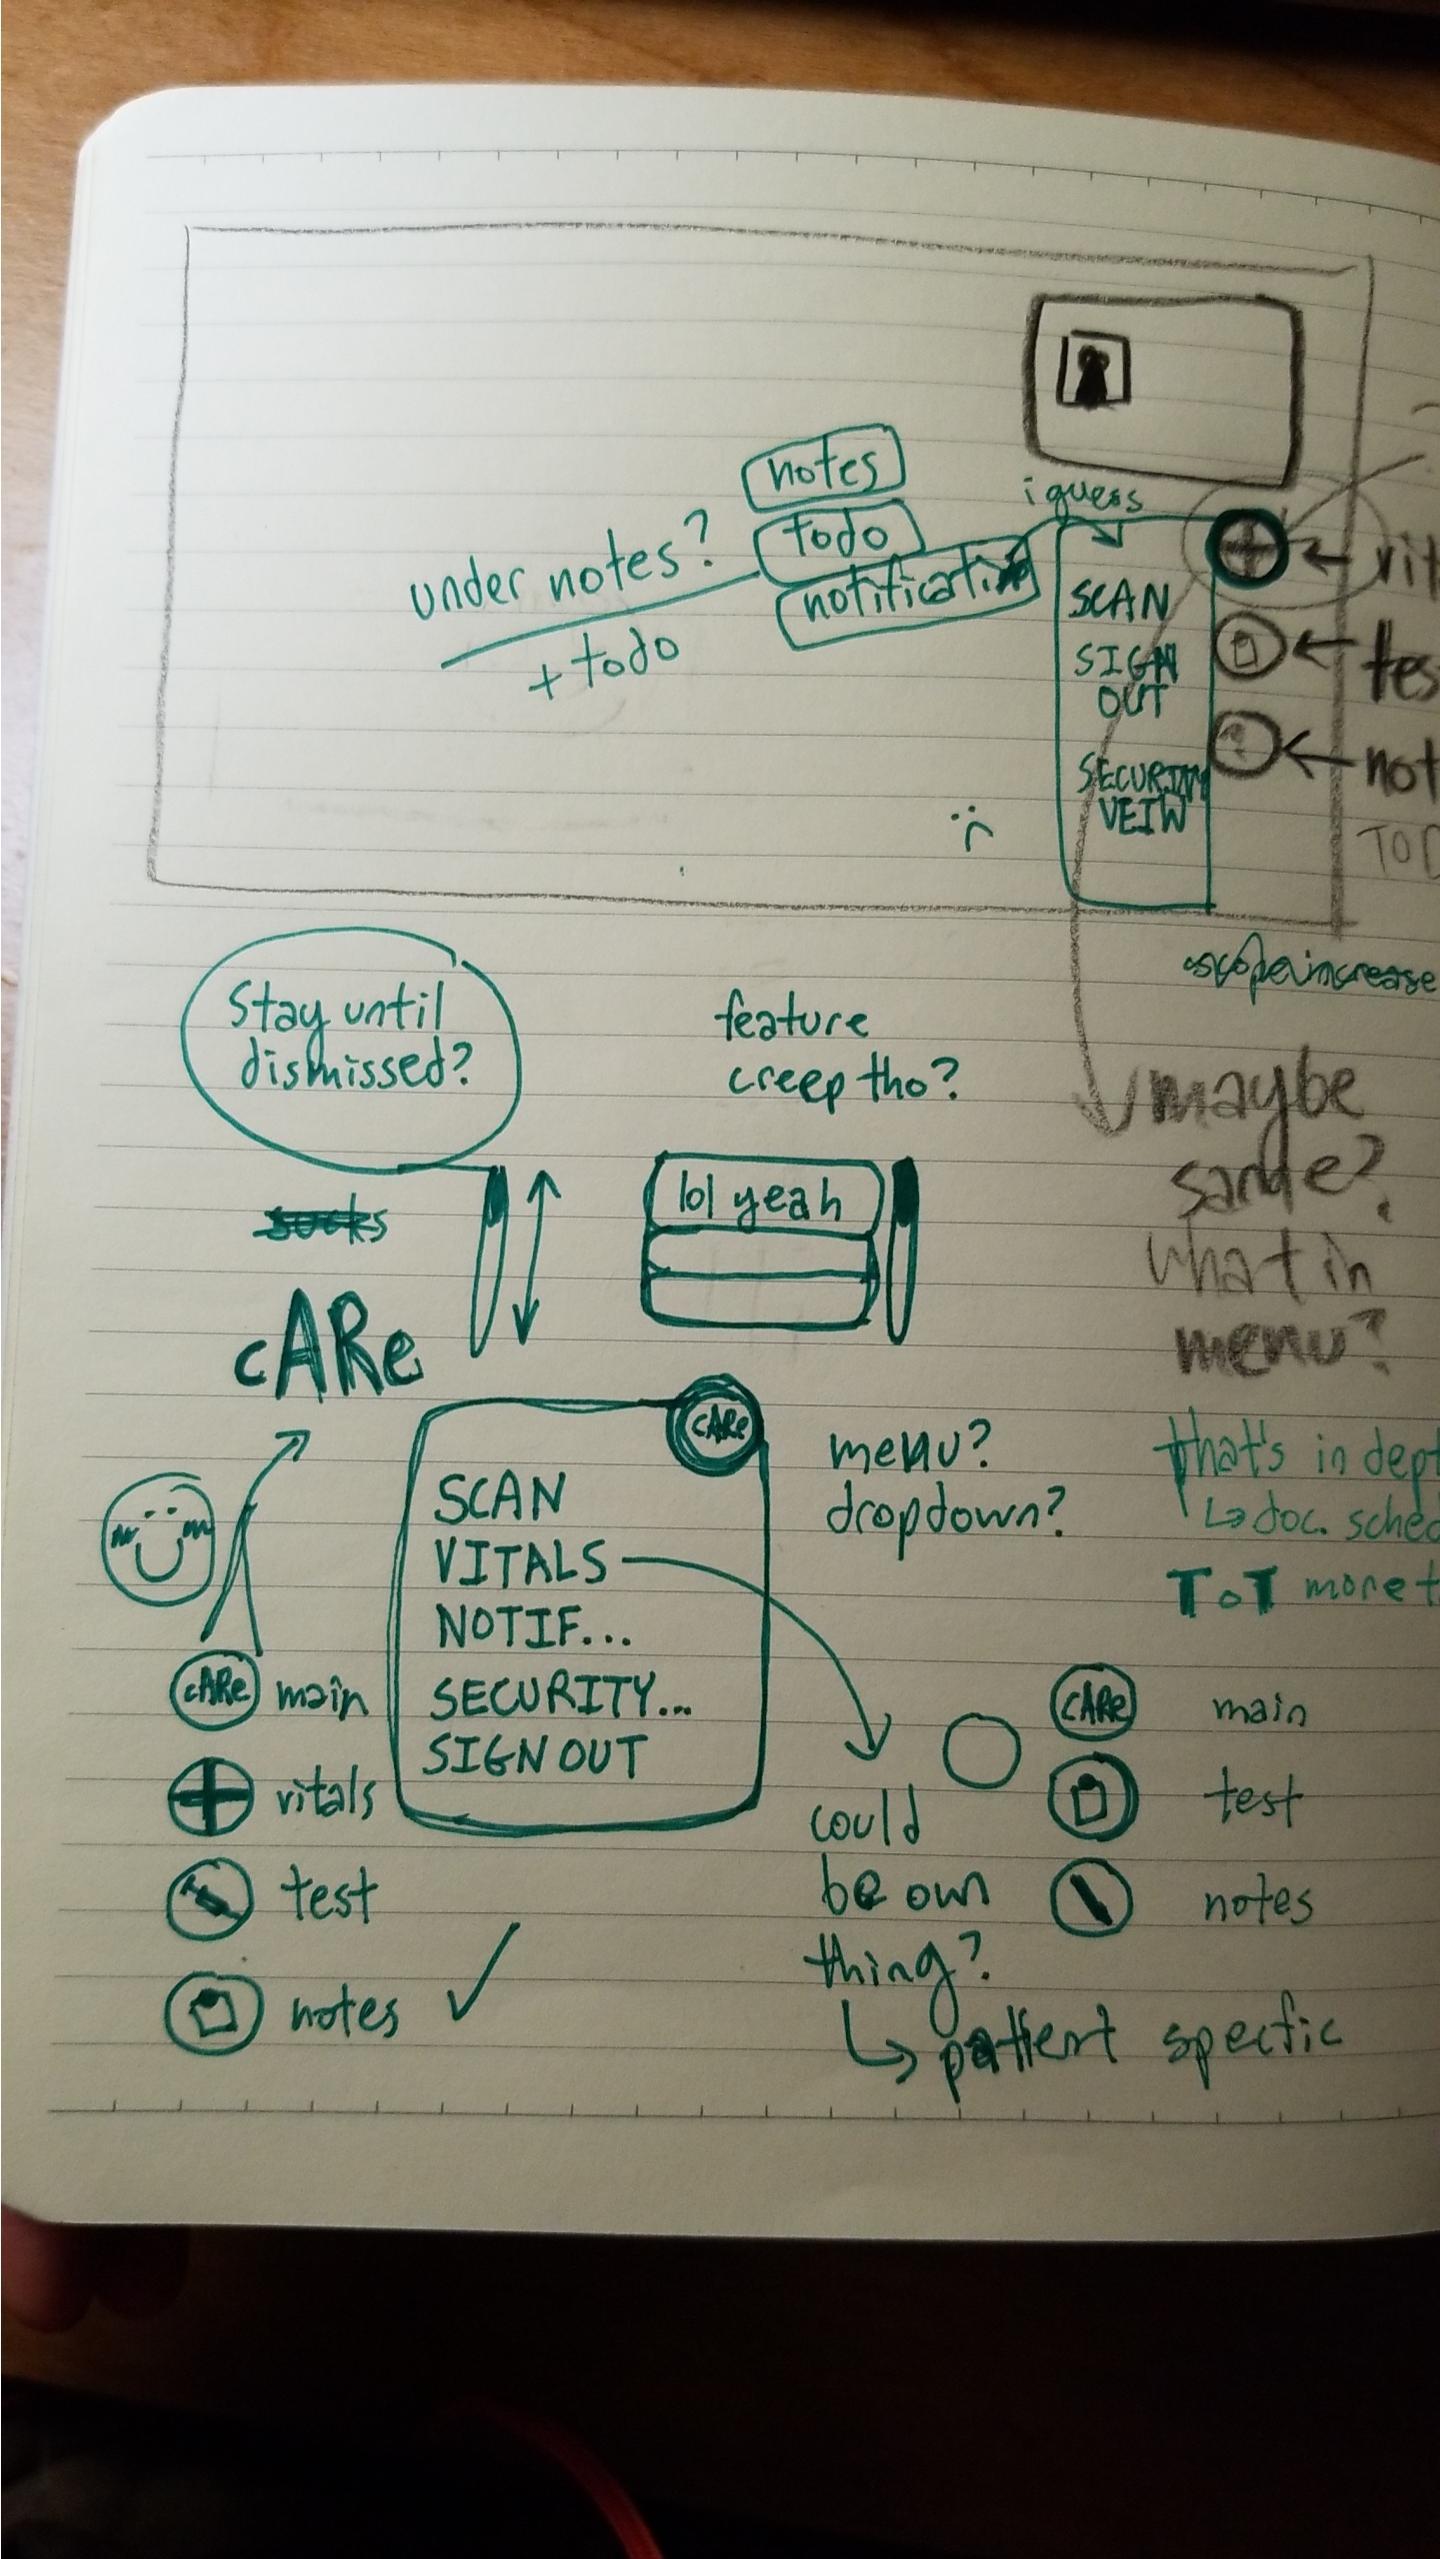 notes
todo
notification
i guess
under notes?
+ todo
SCAN
SIGN
OUT
SECURITY
VEIW
vit
tes
not
TOD
scope increase
Stay until
dismissed?
feature
creep tho?
maybe
same?
what in
menu?
socks
lol yeah
cARe
cARe
menu?
dropdown?
SCAN
VITALS
NOTIF...
SECURITY...
SIGN OUT
that's in dept
↳ doc. sched
TOT more t
cARe main
vitals
test
notes
could
be own
thing?
↳ patient specfic
cARe main
test
notes